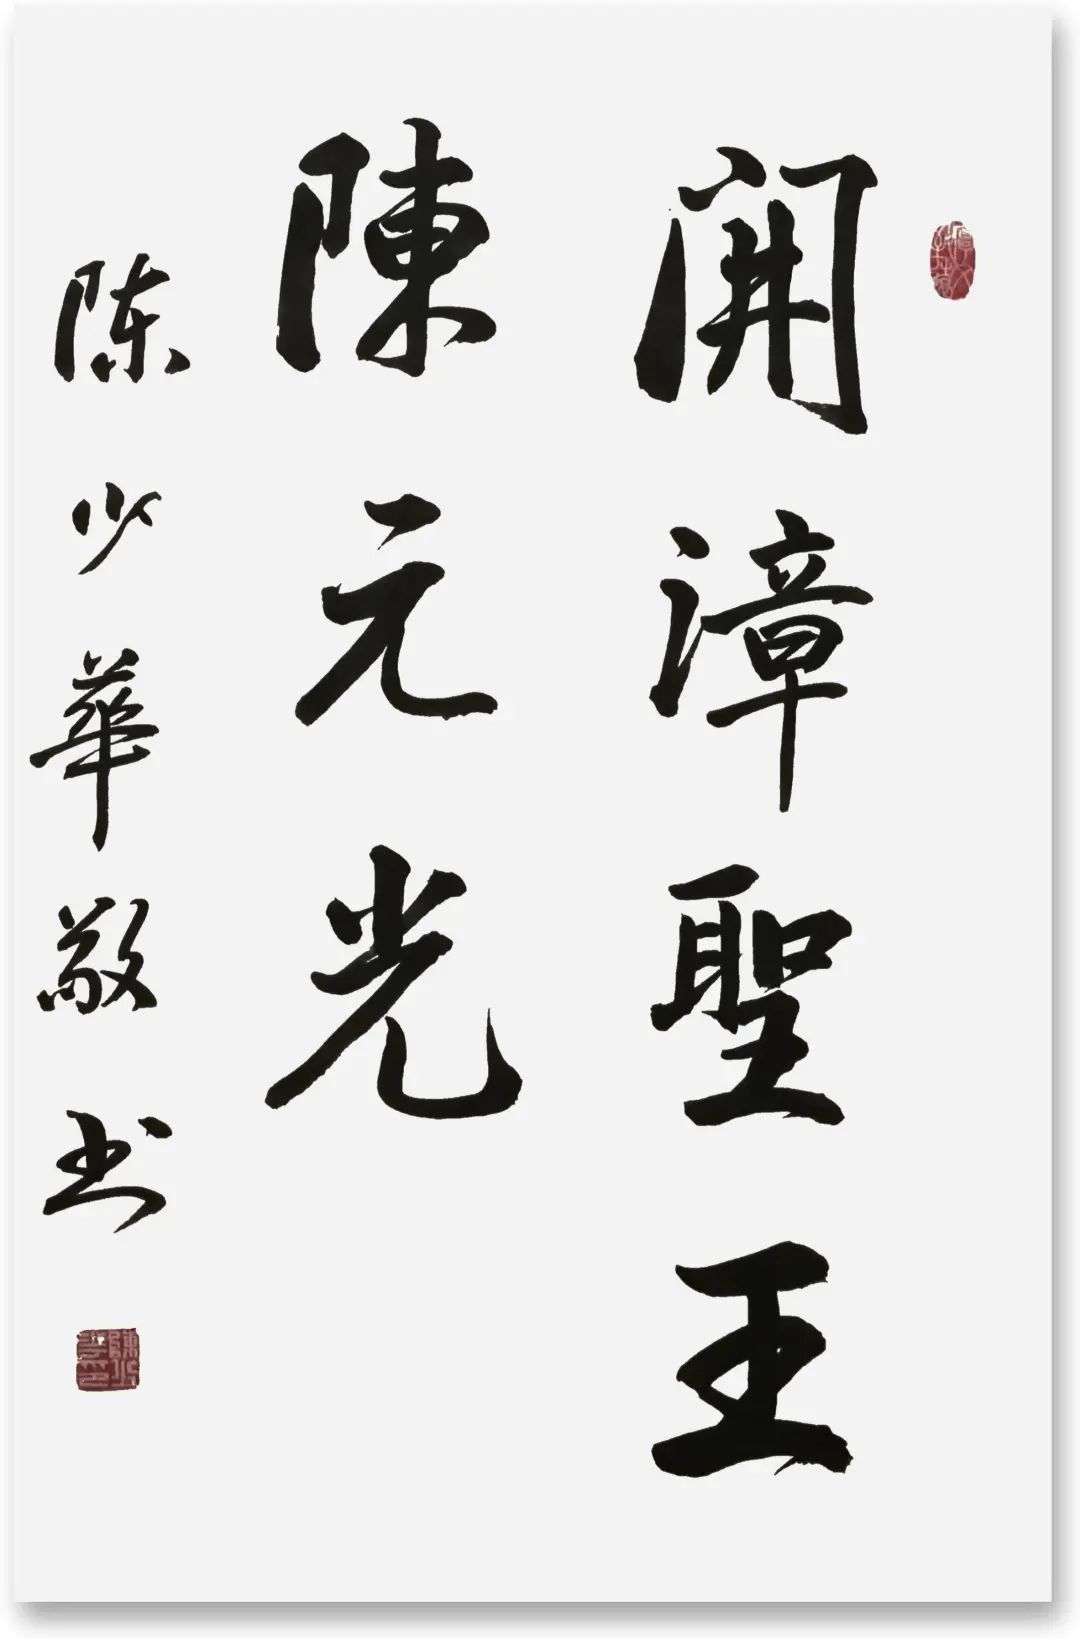 開漳聖王
陳元光
陈少華敬书